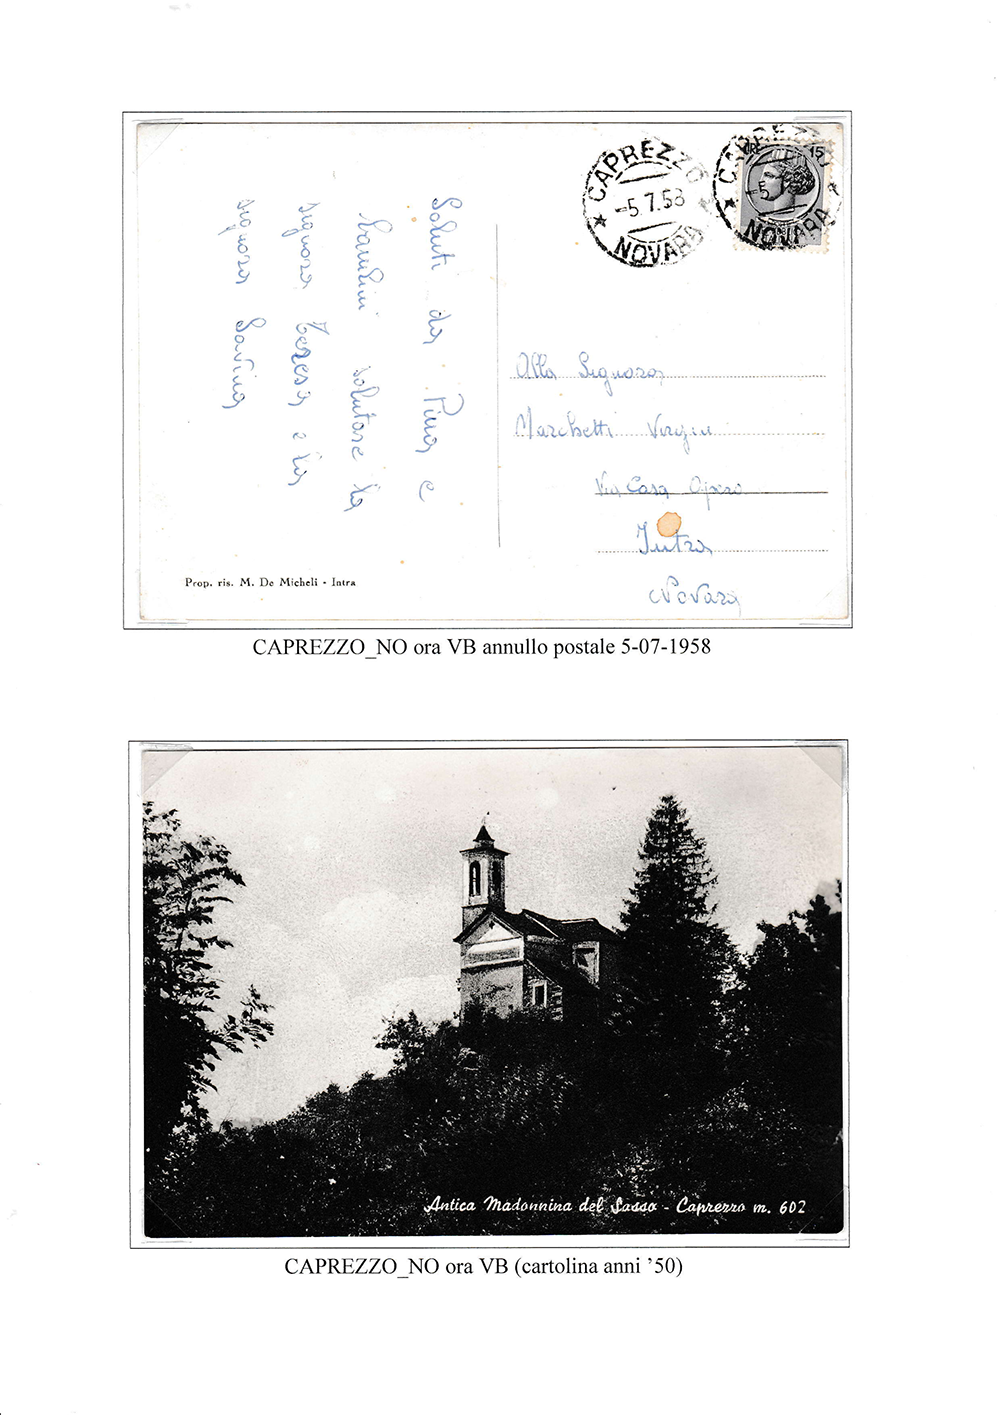 Saluti da Pina e
bambini salutare la
signora Teresa e la
signora Savina
CAPREZZO
-5.7.58
NOVARA
CAPREZZO
LIRE 15
-5
NOVARA
Alla Signora
Marchetti Virgin
Via Casa Operai
Intra
Novara
Prop. ris. M. De Micheli - Intra
CAPREZZO_NO ora VB annullo postale 5-07-1958
Antica Madonnina del Sasso - Caprezzo m. 602
CAPREZZO_NO ora VB (cartolina anni ’50)